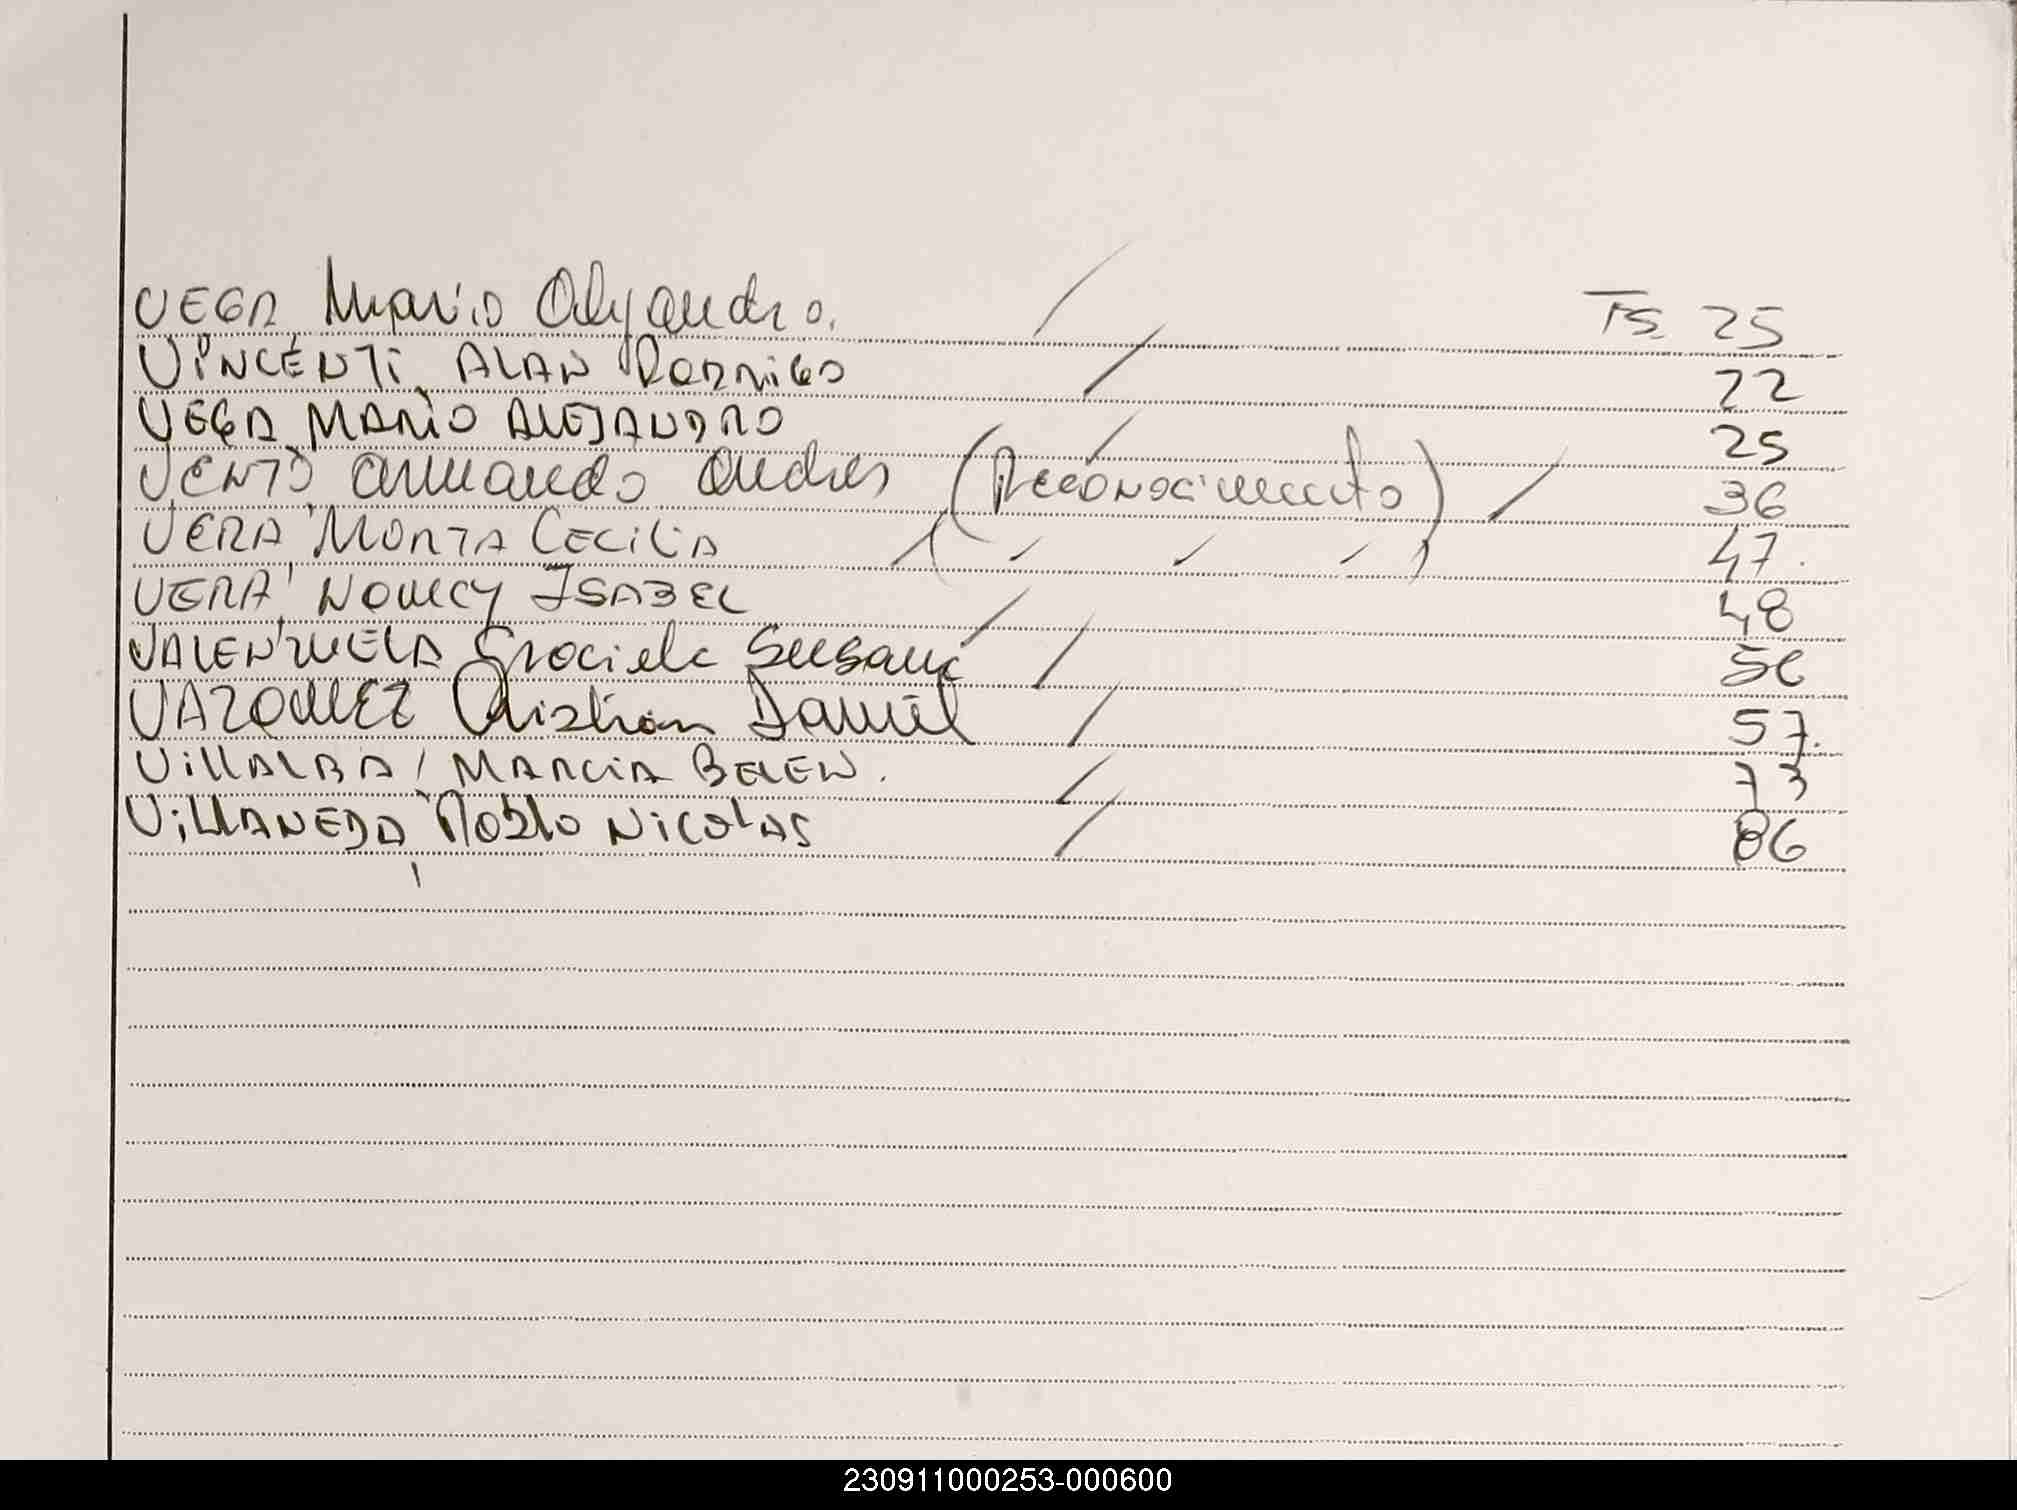 VEGA Mario Alejandro. Fs. 25
VINCENTI, ALAN RODRIGO / 22
VEGA MARIO ALEJANDRO / 25
VENTO Armando Andres (Reconocimiento) / 36
VERA, MONTA CECILIA / ( " " " ) 47.
VERA, Nancy ISABEL / 48
VALENZUELA Graciela Susana / 56
VAZQUEZ Cristian Daniel / 57.
VILLALBA, MARCIA BELEN. / 73
VILLANEDA, Pablo NICOLAS / 86
230911000253-000600